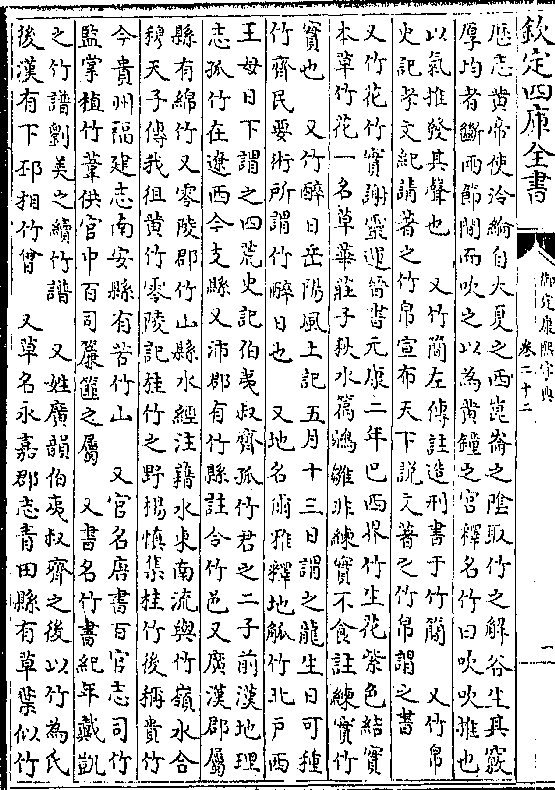 欽定四庫全書
御定康熙字典
卷二十二
一
厯志黄帝使泠綸自大夏之西崑崙之隂取竹之解谷生其竅
厚均者斷兩節間而吹之以為黄鐘之宫釋名竹曰吹吹推也
以氣推發其聲也 又竹簡左傳註造刑書于竹簡 又竹帛
史記孝文紀請著之竹帛宣布天下説文著之竹帛謂之書
又竹花竹實謝靈運晉書元康二年巴西界竹生花紫色結實
本草竹花一名草華莊子秋水篇鵷雛非練實不食註練實竹
實也 又竹醉日岳陽風土記五月十三日謂之龍生日可種
竹齊民要術所謂竹醉日也 又地名爾雅釋地觚竹北戸西
王母日下謂之四荒史記伯夷叔齊孤竹君之二子前漢地理
志孤竹在遼西今支縣又沛郡有竹縣註今竹邑又廣漢郡屬
縣有綿竹又零陵郡竹山縣水經注藉水東南流與竹嶺水合
穆天子傳我徂黄竹零陵記桂竹之野楊慎集桂竹後稱貴竹
今貴州福建志南安縣有苦竹山 又官名唐書百官志司竹
監掌植竹葦供宫中百司簾篚之屬 又書名竹書紀年戴凱
之竹譜劉美之續竹譜 又姓廣韻伯夷叔齊之後以竹為氏
後漢有下邳相竹曾 又草名永嘉郡志青田縣有草葉似竹